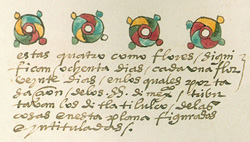 estas quatro como flores, signi
fican, ochenta dias, cada una flor
veinte dias, en los quales por ta
sacion, de los SS. di mex. tribu
tavan los di tlatilulco, de las
cosas en esta plana figuradas
e intituladas.